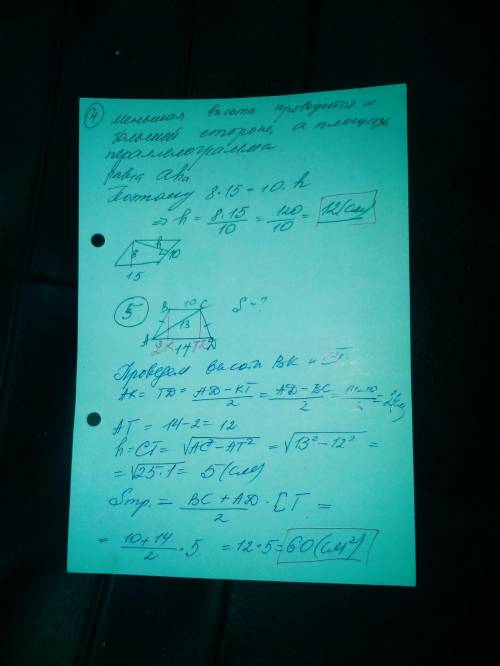 4
меньшая высота проводится к
большей стороне, а площадь
параллелограмма
равна aha
Поэтому 8·15=10·h
=> h = 8·15/10 = 120/10 = 12(см)
8 h 10
15
5
B 10 C S=?
13
A 2 K 14 T 2 D
Проведем высоты BK и CT
AK = TD = AD-KT/2 = AD-BC/2 = 14-10/2 = 2(см)
AT = 14-2 = 12
h=CT= √AC²-AT² = √13²-12² =
= √25·1 = 5(см)
Sтр. = BC+AD/2 · CT =
= 10+14/2 · 5 = 12·5= 60(см²)